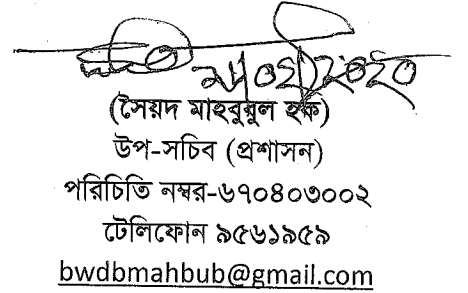 (সৈয়দ মাহবুবুল হক)
উপ-সচিব (প্রশাসন)
পরিচিতি নম্বর-৬৭০৪০৩০০২
টেলিফোন ৯৫৬১৯৫৯
bwdbmahbub@gmail.com